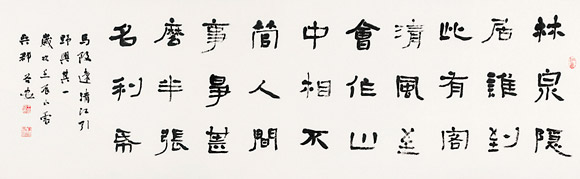 林泉隱
居誰到
此有客
清風至
會作山
中相不
管人間
事爭甚
麼半張
名利帋
馬致遠清江引
野興其一
歲次壬辰小雪
吳郡